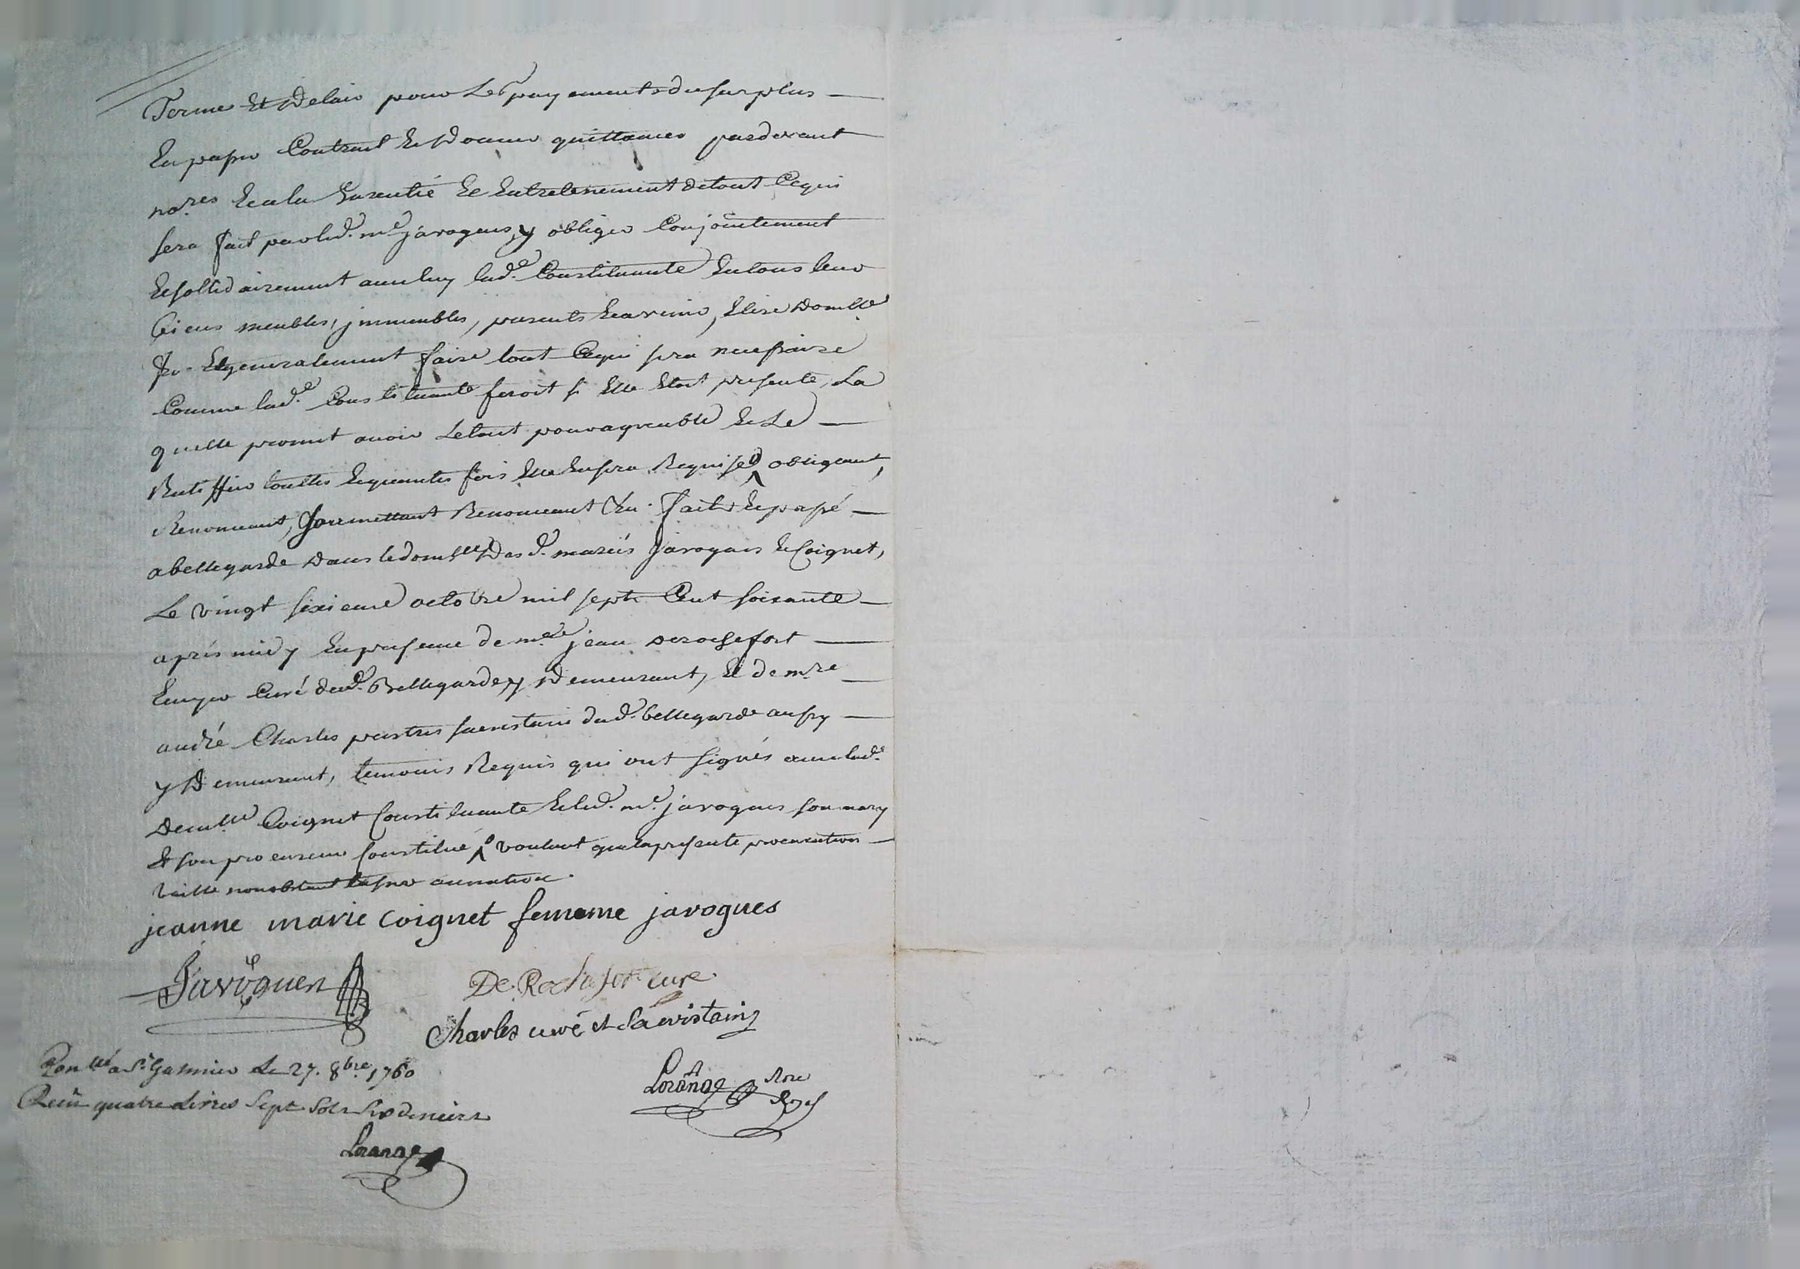 Terme Et Delais pour Les payements du surplus —
En passer Contract Et Donner quittances pardevant
no.res Et a la Garentie Et Entretenement de tout Cequi
sera fait par led.t m.e javogues, y obliger Conjointement
Et solidairement avec luy lad.e Constituante En tous leurs
biens meubles, jmmeubles, presents Et avenir, Elire Domlle
Et generalement faire tout Cequi sera necessaire
Comme lad.e Constituante feroit si Elle Etoit presente, La
quelle promet avoir Letout pour agreable Et Le —
Ratiffier touttes Et quantes fois Elle En sera Requise, obligeant,
Renonceant, Soumettant Renonceant &a. Fait Et passé —
a bellegarde Dans le domlle Des d.t mariés javogues Et Coignet,
Le vingt sixieme octobre mil sept Cent soixante —
aprés midy En presence de m.re jean derochefort —
Curé dud.t Bellegarde y Demeurant, Et de m.re —
andré Charles prestre sacristain dud.t bellegarde aussy —
y Demeurant, temoins Requis qui ont signés avec lad.e
Demlle Coignet Constituante Et led.t m.e javogues son mary
Et son procureur Constitué voulant que la presente procuration —
vaille nonobstant surannation.
jeanne marie coignet femme javogues
Javogues
De Rochefort curé.
Charles curé et Sacristain
Lorange no.re Royal
Con.llé a S.t Galmier Le 27. 8bre 1760
Receu quatre Livres Sept Sols Six deniers
Lorange